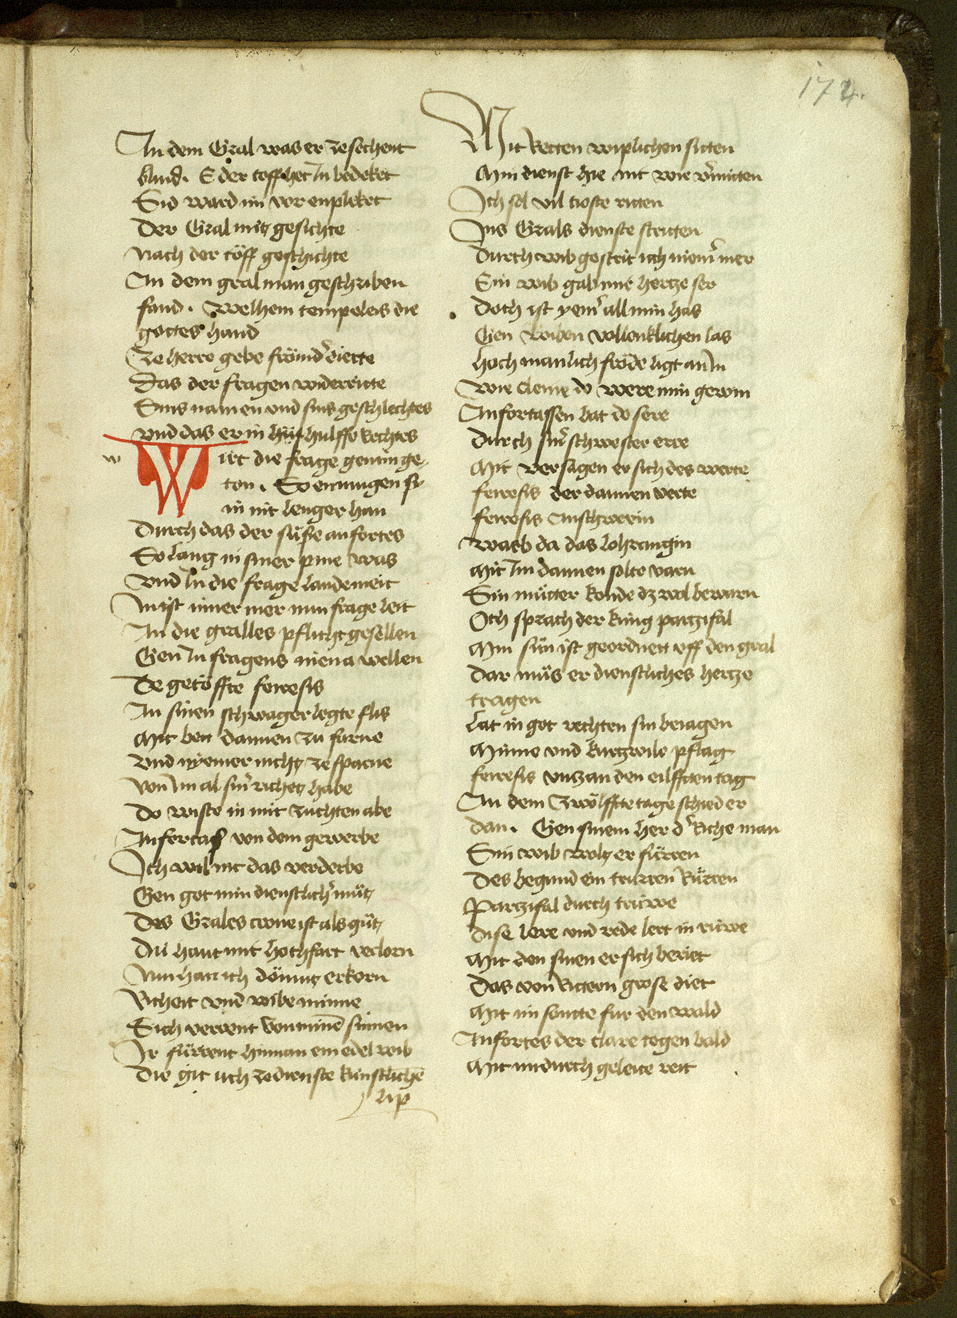 174.
In dem Gral was er ze sehent
blind. E der toff het In bedeket
Sid ward im vor enpleket
Der Gral mit gesichte
Nach der töff geschichte
An dem gral man geschriben
fand. Welhem tempeleis die
gottes hand
Ze herre gebe frömd diette
Das der fragen widerriete
Sins namen vnd sins geschlechtes
vnd das er in hulffe Rechtes
w
Wirt die frage gen im ge-
ton. So enmugen si
in nit lenger han
Durch das der süsse anfortes
So lang in siner pine was
Vnd In die frage lande meit
In ist imer mer nun frage leit
In die gralles pflicht gesellen
Gen In fragens niena wellen
De getöffte ferefis
An sinen schwager legte flis
Mit bett dannen zu farne
Vnd nyemer nicht ze sparne
Von Im al sin richet habe
Do wiste in mit zuchten abe
Anfortas von dem gewerbe
Ich wil nit das verderbe
Gen got min dienstlicher müt
Des Grales crone ist als güt
Die haut mir hochfart verlorn
Nun han ich dömut erkorn
Richeit vnd wibe minne
Sich verrent von minen sinnen
Ir fürent hinnan ein edel wib
Die git uch ze dienste kunstlichen
lip
Mit Retten wiplichen sitten
Min dienst hie nit wir vermitten
Ich sol vil tioste ritten
Ins Grals dienste stritten
Durch wib gestrit ich niemer mer
Ein wib gab mir hertze ser
Doch ist yemer all min has
Gen wiben vollenklichen las
hoch manlich fröde ligt an In
Wie cleine do were min gewin
Anfortassen bat do sere
Durch siner schwester ere
Mit versagen er sich des werte
ferefis der dannen verte
ferefis Anschevein
Warb da das lohrangin
Mit Im dannen solte varn
Sin mütter konde dz wol bewarn
Och sprach der küng partzifal
Min sün ist geordnett vff den gral
Dar müs er dienstliches hertze
tragen
Lat in got rechten sin beiagen
Minne vnd kurtzwile pflag
ferefis vntz an den eilfften tag
An dem zwölfften tage schied er
dan. Gen sinem her der Riche man
Sin wib wolt er füren
Des begund ein truren Rüren
Partzifal durch trüwe
Dise lere vnd rede lert in rüwe
Mit den sinen er sich beriet
Das von Rittern grose diet
Mit im sante fur den wald
Anfortes der clare tegen bald
Mit im durch geleite reit